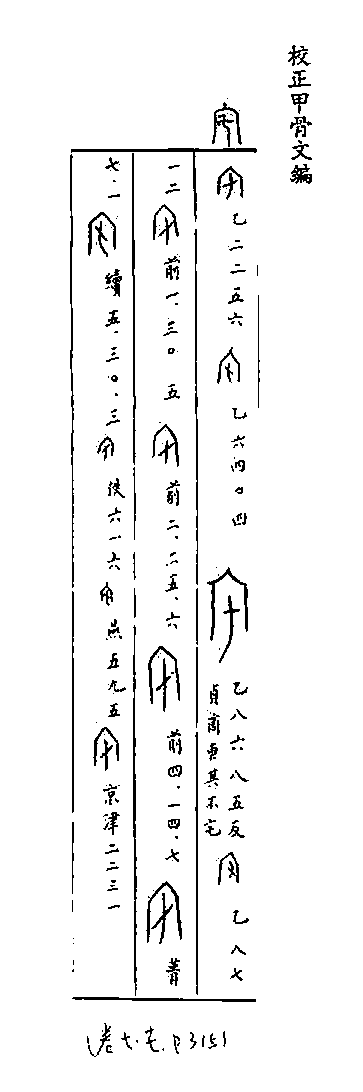 校正甲骨文編
宅
乙二二五六 乙六四〇四 乙八六八五反 貞䓕其不宅 乙八七
一二 前一·三〇·五 前二·二五·六 前四·一四·七 菁
七·一 續五·三〇·三 佚六一六 燕五九五 京津二二三一
卷七·宅·P3151